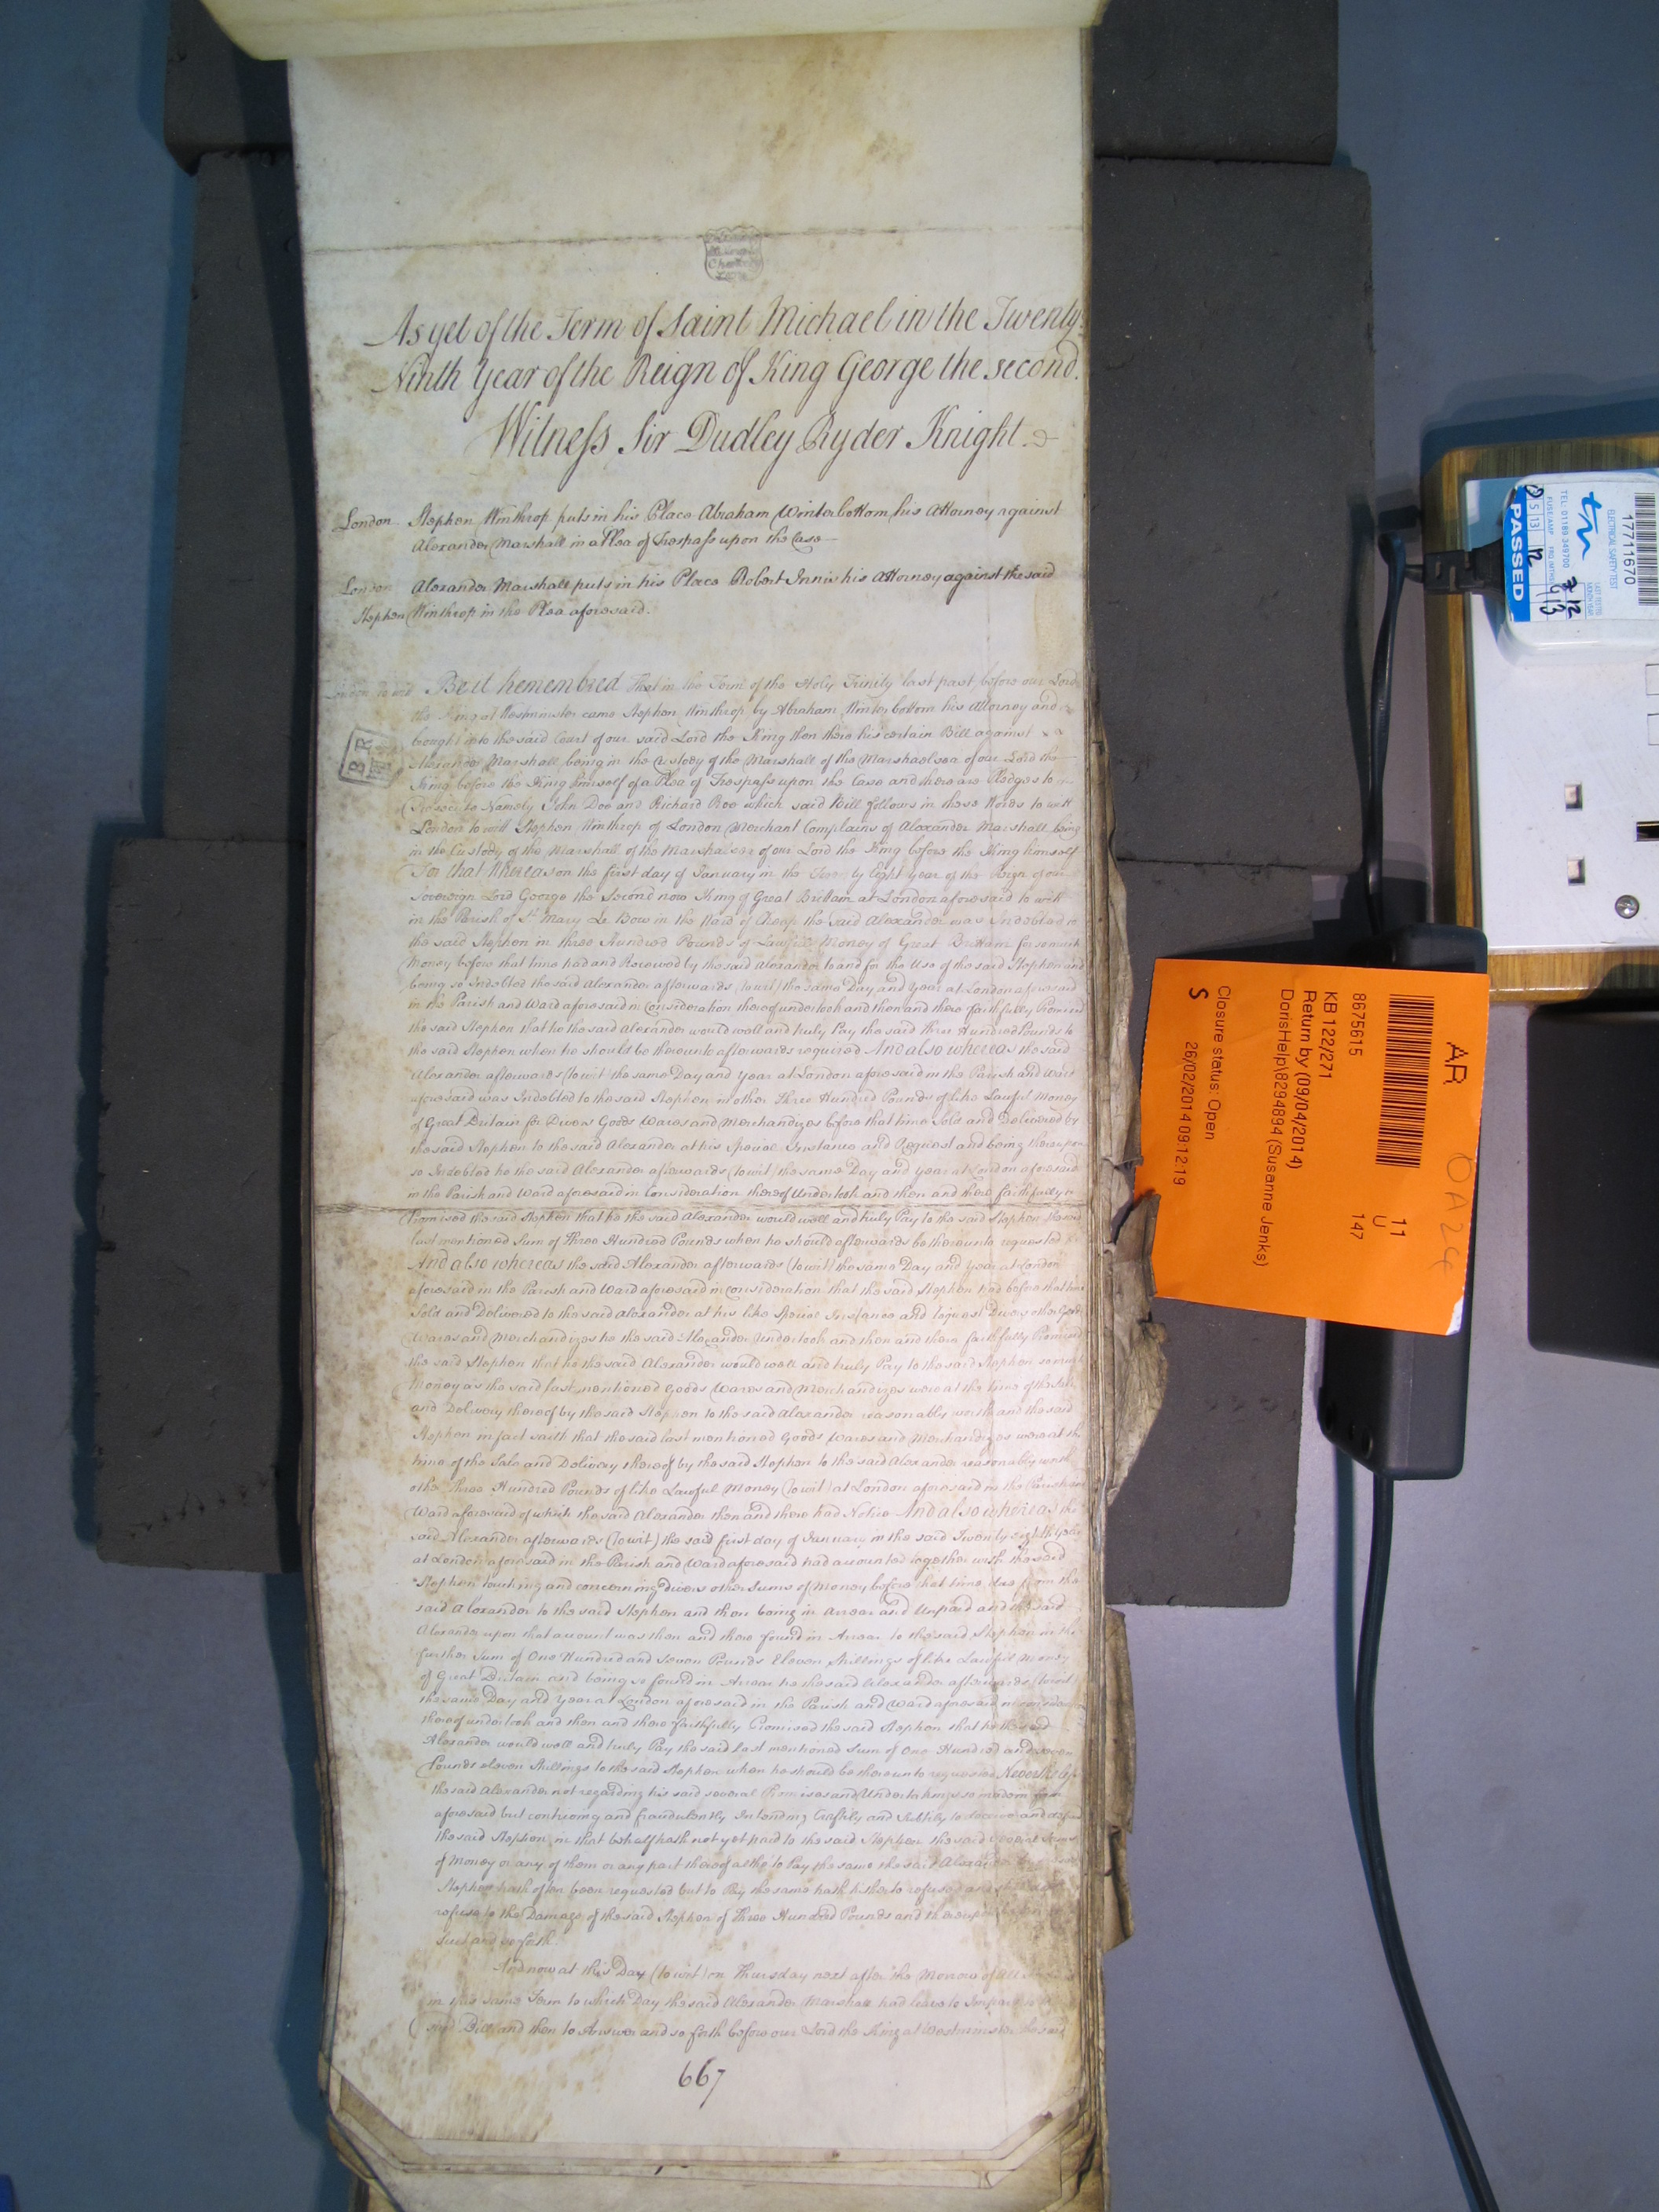 As yet of the Term of Saint Michael in the Twenty
Ninth Year of the Reign of King George the second.
Witness Sir Dudley Ryder Knight.
London Stephen Winthrop puts in his Place Abraham Winterbottom his Attorney against
Alexander Marshall in a Plea of Trespass upon the Case
London Alexander Marshall puts in his Place Robert Innis his Attorney against the said
Stephen Winthrop in the Plea aforesaid.
London to wit Be it remembred That in the Term of the Holy Trinity last past before our Lord
the King at Westminster came Stephen Winthrop by Abraham Winterbottom his Attorney and
brought into the said Court of our said Lord the King then there his certain Bill against
Alexander Marshall being in the Custody of the Marshall of the Marshalsea of our Lord the
King before the King himself of a Plea of Trespass upon the Case and there are Pledges to
Prosecute Namely John Doe and Richard Roe which said Bill follows in these Words to witt
London to witt Stephen Winthrop of London Merchant Complains of Alexander Marshall being
in the Custody of the Marshall of the Marshalsea of our Lord the King before the King himself
For that Whereas on the first day of January in the Twenty Eight year of the Reign of our
Sovereign Lord George the Second now King of Great Brittain at London aforesaid to witt
in the Parish of St. Mary Le Bow in the Ward of Cheap the said Alexander was Indebted to
the said Stephen in three Hundred Pounds of Lawfull Money of Great Brittain for so much
Money before that time had and Received by the said Alexander to and for the Use of the said Stephen and
being so Indebted the said Alexander afterwards (to wit) the same Day and year at London aforesaid
in the Parish and Ward aforesaid in Consideration thereof undertook and then and there faithfully Promised
the said Stephen that he the said Alexander would well and truly Pay the said three Hundred Pounds to
the said Stephen when he should be thereunto afterwards required And also whereas the said
Alexander afterwards (to wit) the same Day and year at London aforesaid in the Parish and Ward
aforesaid was Indebted to the said Stephen in other Three Hundred Pounds of like Lawful Money
of Great Britain for Divers Goods Wares and Merchandizes before that time Sold and Delivered by
the said Stephen to the said Alexander at his Special Instance and Request and being thereupon
so Indebted he the said Alexander afterwards (to wit) the same Day and year at London aforesaid
in the Parish and Ward aforesaid in Consideration thereof Undertook and then and there faithfully
Promised the said Stephen that he the said Alexander would well and truly Pay to the said Stephen the said
last mentioned Sum of three Hundred Pounds when he should afterwards be thereunto requested
And also whereas the said Alexander afterwards (to wit) the same Day and year at London
aforesaid in the Parish and Ward aforesaid in Consideration that the said Stephen had before that time
Sold and Delivered to the said Alexander at his like Special Instance and request Divers other Goods
Wares and Merchandizes he the said Alexander Undertook and then and there faithfully Promised
the said Stephen that he the said Alexander would well and truly Pay to the said Stephen so much
Money as the said last mentioned Goods Wares and Merchandizes were at the time of the Sale
and Delivery thereof by the said Stephen to the said Alexander reasonably worth and the said
Stephen in fact saith that the said last mentioned Goods Wares and Merchandizes were at the
time of the Sale and Delivery thereof by the said Stephen to the said Alexander reasonably worth
other Three Hundred Pounds of like Lawful Money (to wit) at London aforesaid in the Parish and
Ward aforesaid of which the said Alexander then and there had Notice And also whereas the
said Alexander afterwards (to wit) the said first day of January in the said Twenty eighth year
at London aforesaid in the Parish and Ward aforesaid had accounted together with the said
Stephen touching and concerning divers other Sums of Money before that time due from the
said Alexander to the said Stephen and then being in Arrear and Unpaid and the said
Alexander upon that account was then and there found in Arrear to the said Stephen in the
further Sum of One Hundred and Seven Pounds Eleven Shillings of like Lawful Money
of Great Britain and being so found in Arrear he the said Alexander afterwards (to wit)
the same Day and year at London aforesaid in the Parish and Ward aforesaid in consideration
thereof undertook and then and there faithfully Promised the said Stephen that he the said
Alexander would well and truly Pay the said last mentioned Sum of One Hundred and seven
Pounds eleven Shillings to the said Stephen when he should be thereunto requested Nevertheless
the said Alexander not regarding his said several Promises and Undertakings so made in form
aforesaid but contriving and fraudulently Intending Craftily and Subtily to deceive and defraud
the said Stephen in that behalf hath not yet paid to the said Stephen the said several Sums
of Money or any of them or any part thereof altho' to Pay the same the said Alexander
Stephen hath often been requested but to Pay the same hath hitherto refused and still doth
refuse to the Damage of the said Stephen of Three Hundred Pounds and thereupon
Suit and so forth.
And now at this Day (to wit) on Thursday next after the Morrow of All
in this same Term to which Day the said Alexander Marshall had leave to Imparl to
said Bill and then to Answer and so forth before our Lord the King at Westminster the said
667
AR
OA24
11
U
147
8675615
KB 122/271
Return by (09/04/2014)
DorisHelp\8294894 (Susanne Jenks)
Closure status: Open
S
26/02/2014 09:12:19
17711670
ELECTRICAL SAFETY TEST
PASSED